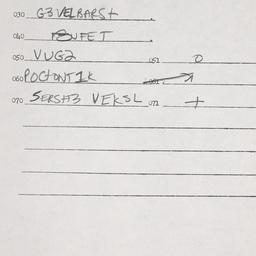 030 G3VELBARST
040 BUFET
050 VUG2 051 O
060 POCTONT1K 061
070 SERSH3 VEKSL 071 +